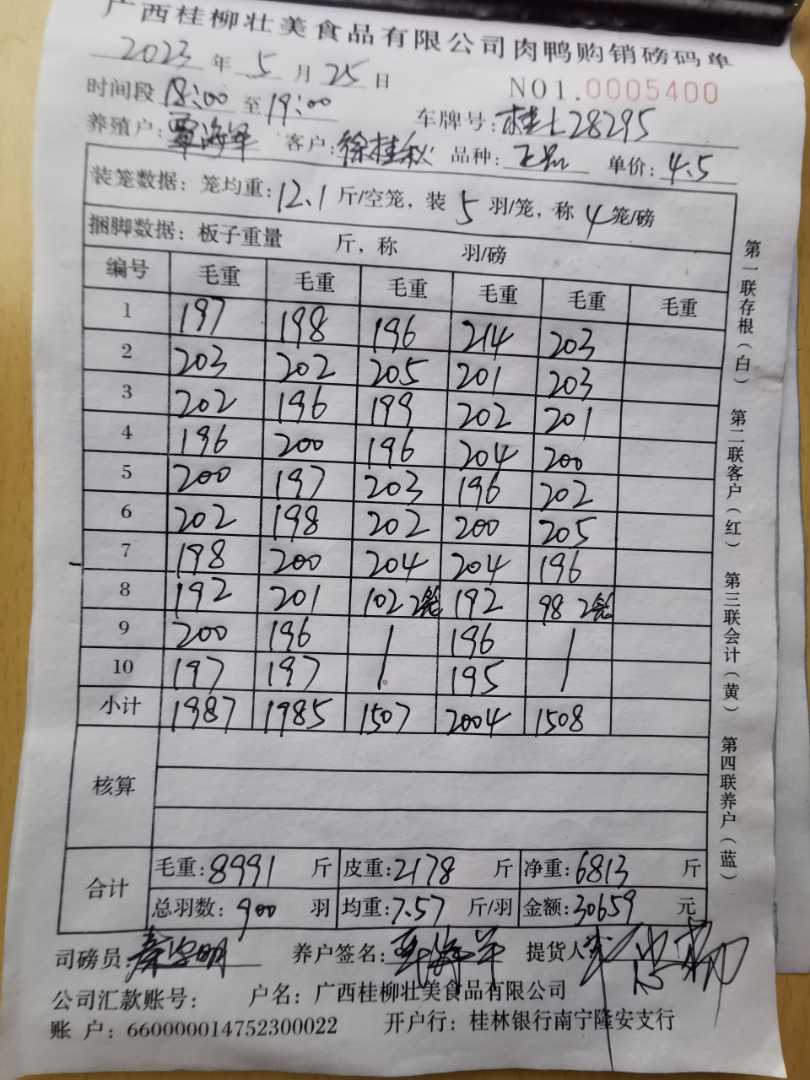 广西桂柳壮美食品有限公司肉鸭购销磅码单
2023 年 5 月 25 日
NO1.0005400
时间段 18:00 至 19:00
车牌号: 桂L28295
养殖户: 覃海军 客户: 徐桂秋 品种: 正品 单价: 4.5
装笼数据: 笼均重: 12.1 斤/空笼, 装 5 羽/笼, 称 4 笼/磅
捆脚数据: 板子重量 斤, 称 羽/磅
编号 毛重 毛重 毛重 毛重 毛重 毛重
1 197 198 196 214 203
2 203 202 205 201 203
3 202 196 199 202 201
4 196 200 196 204 200
5 200 197 203 196 202
6 202 198 202 200 205
7 198 200 204 204 196
8 192 201 102 2笼 192 98 2笼
9 200 196 / 196 /
10 197 197 / 195 /
小计 1987 1985 1507 2004 1508
核算
合计
毛重: 8991 斤 皮重: 2178 斤 净重: 6813 斤
总羽数: 900 羽 均重: 7.57 斤/羽 金额: 30659 元
司磅员: 养户签名: 提货人
公司汇款账号: 户名: 广西桂柳壮美食品有限公司
账 户: 660000014752300022 开户行: 桂林银行南宁隆安支行
第一联存根(白) 第二联客户(红) 第三联会计(黄) 第四联养户(蓝)